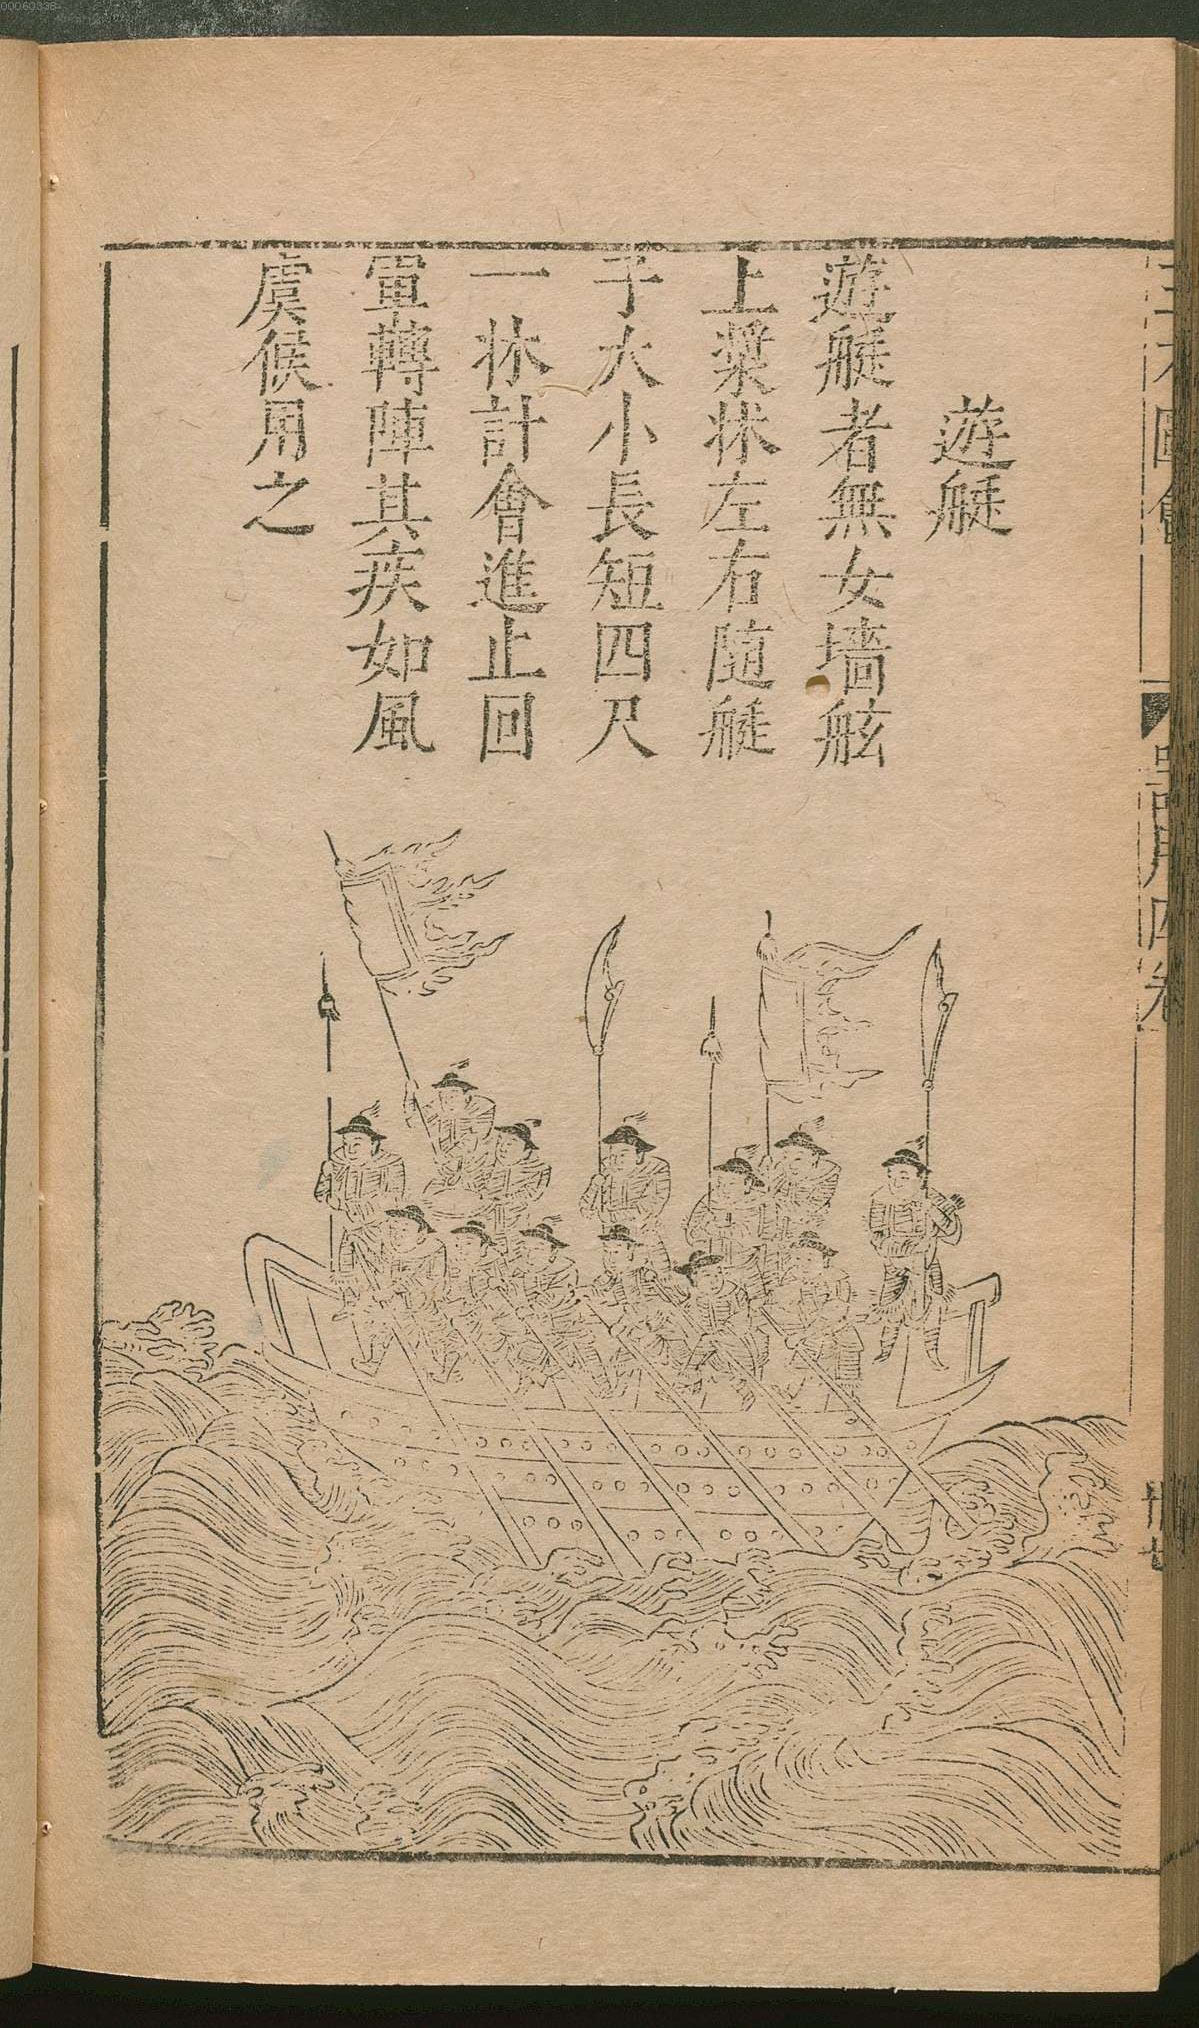 遊艇
遊艇者無女墻舷
上槳牀左右隨艇
子大小長短四尺
一牀計會進止回
軍轉陣其疾如風
虞候用之
三才圖會
器用四卷
卅七
00060338